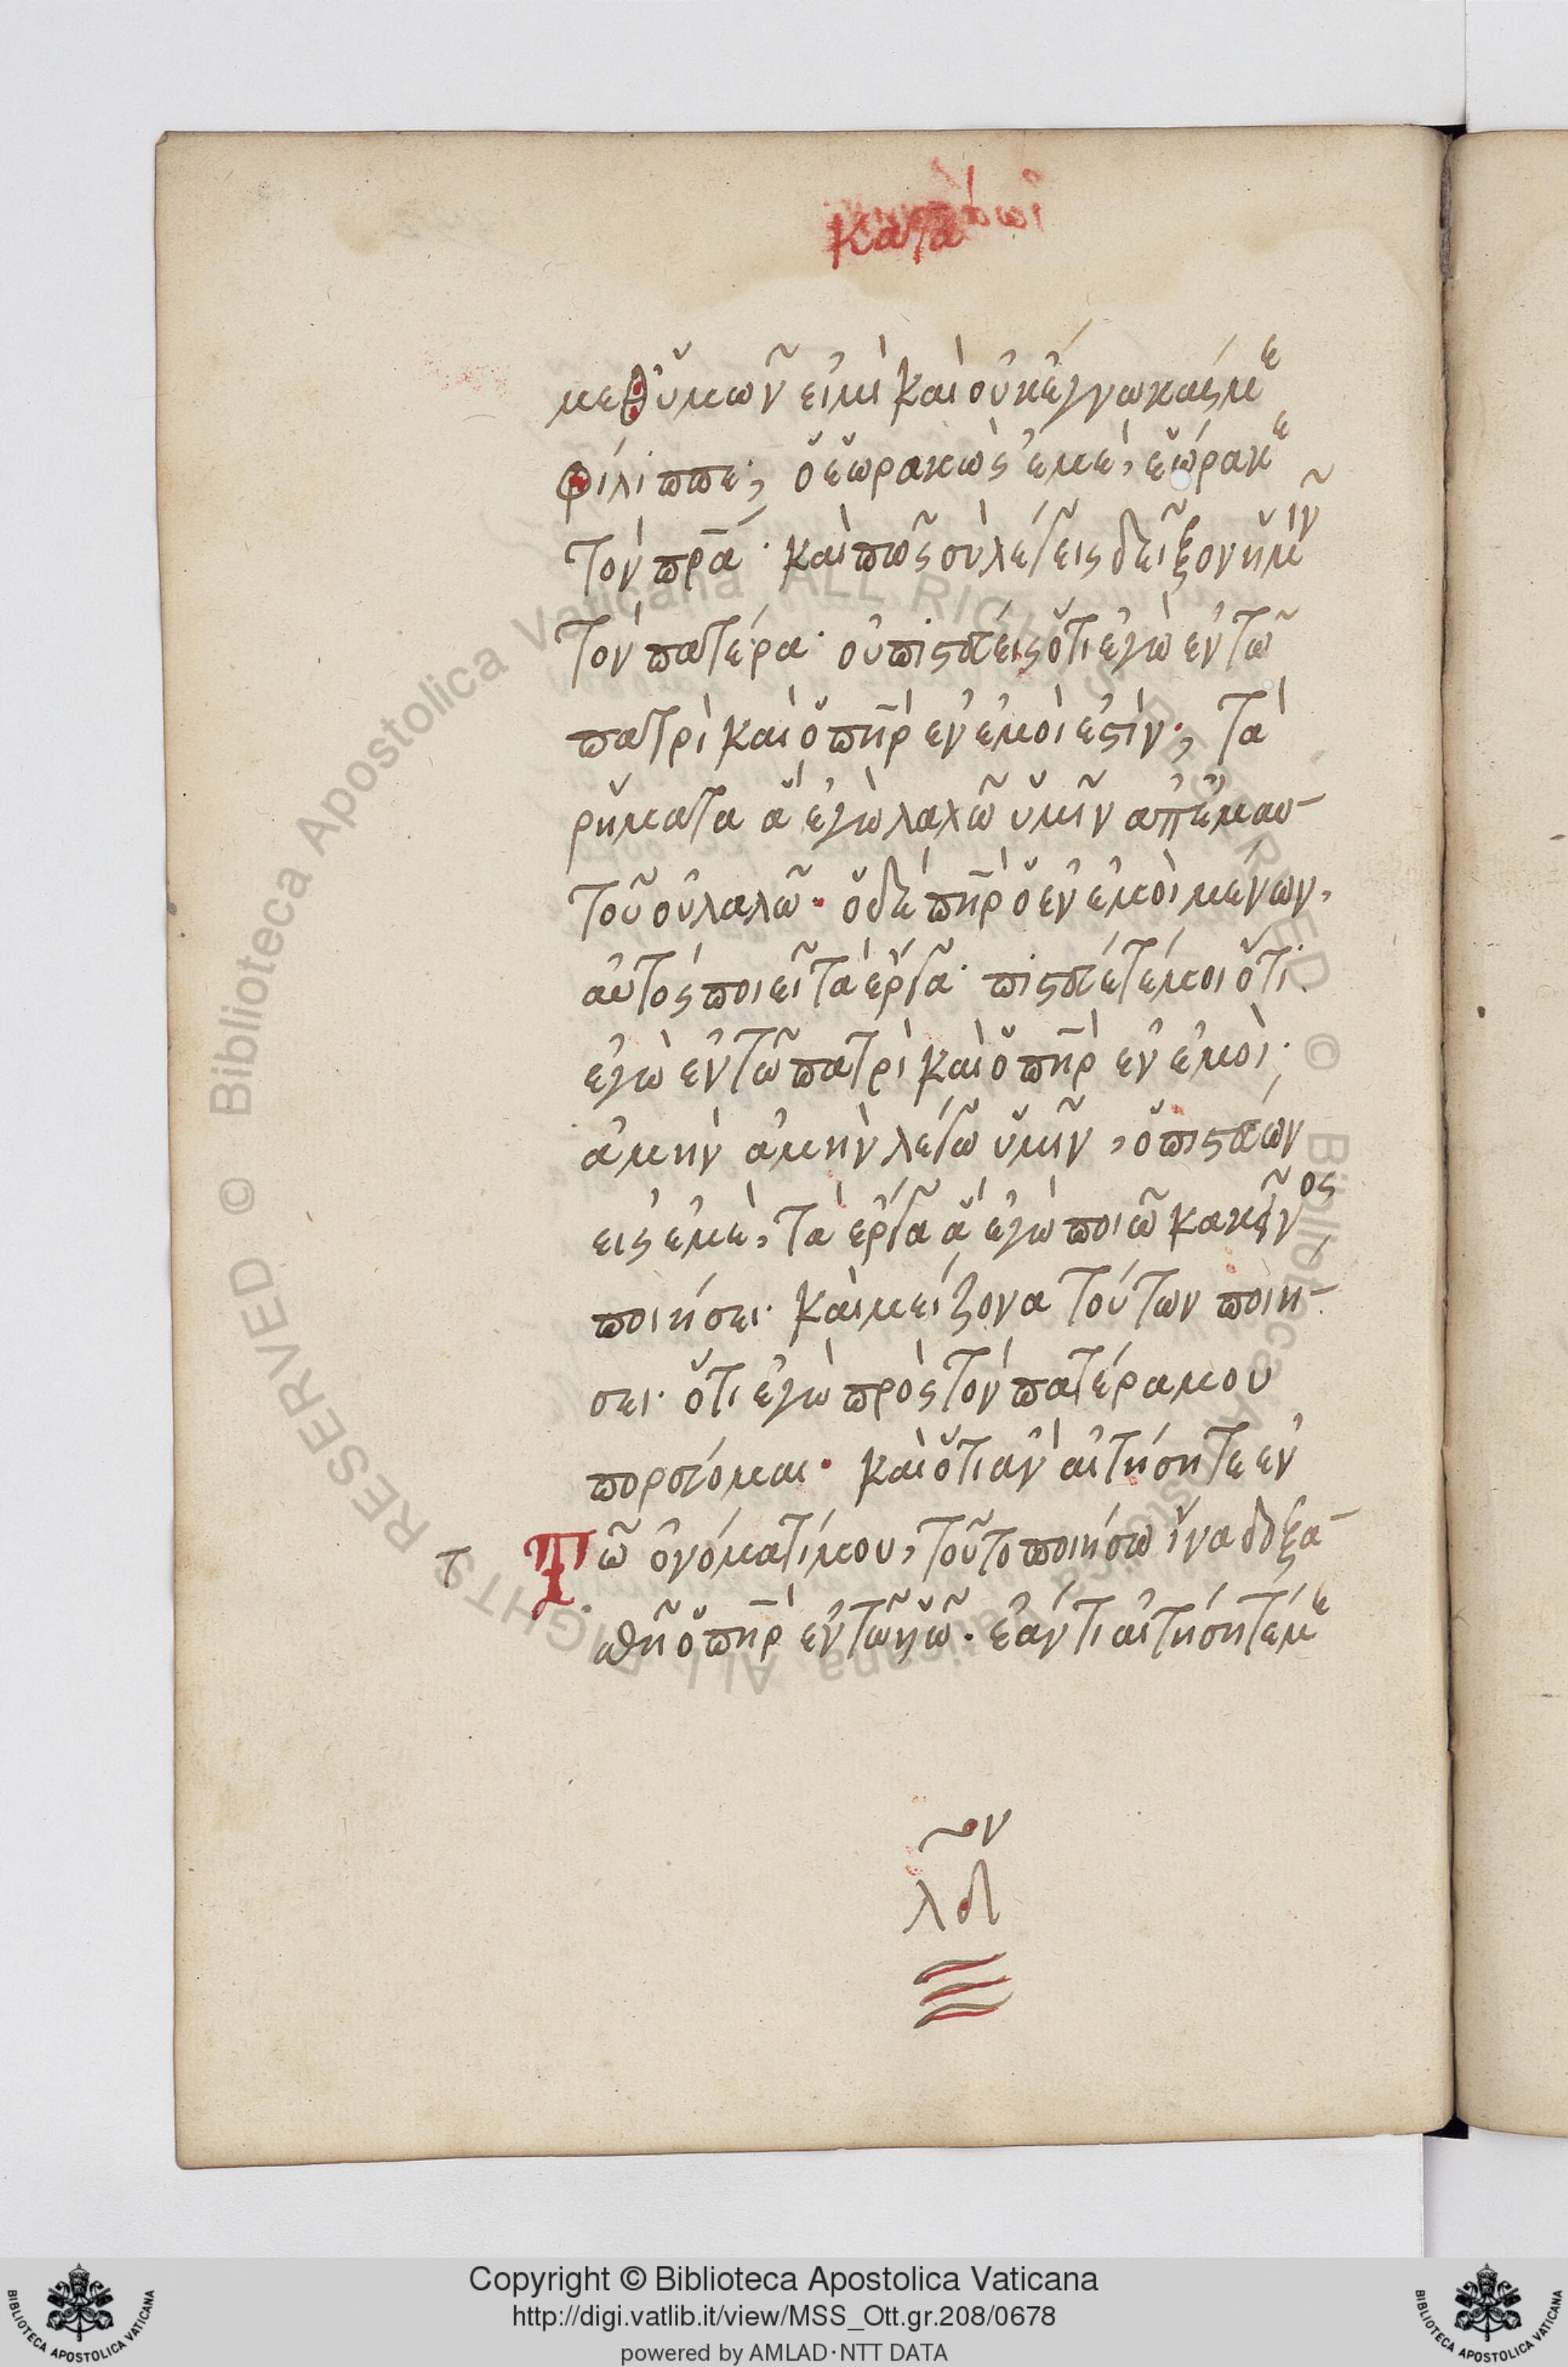 κατὰ ἰω
μεθ ὑμῶν εἰμὶ καὶ οὐκ ἔγνωκάς με
φίλιππε; ὁ ἑωρακὼς ἐμὲ, ἑώρακε
τὸν πρ̅α· καὶ πῶς σὺ λέγεις δεῖξον ἡμῖν
τὸν πατέρα· οὐ πιστεύεις ὅτι ἐγὼ ἐν τῶ
πατρὶ καὶ ὁ πη̅ρ ἐν ἐμοί ἐστιν; τὰ
ρήματα ἃ ἐγὼ λαλῶ ὑμῖν ἀπ ἐμαυ-
τοῦ οὐ λαλῶ· ὁ δὲ πη̅ρ ὁ ἐν ἐμοὶ μένων,
αὐτὸς ποιεῖ τὰ ἔργα· πιστεύετέ μοι ὅτι
ἐγὼ ἐν τῶ πατρὶ καὶ ὁ πη̅ρ ἐν ἐμοί·
ἀμὴν ἀμὴν λέγω ὑμῖν, ὁ πιστεύων
εἰς ἐμὲ, τὰ ἔργα ἃ ἐγὼ ποιῶ κακεῖνος
ποιήσει· καὶ μείζονα τούτων ποιή-
σει· ὅτι ἐγὼ πρὸς τὸν πατέρα μου
πορεύομαι· καὶ ὅτι ἂν αἰτήσητε ἐν
τ Τῶ ὀνόματί μου, τοῦτο ποιήσω ἵνα δοξα-
σθῆ ὁ πη̅ρ ἐν τῶ υἱῶ· ἐάν τι αἰτήσητέ με
λδ
Copyright © Biblioteca Apostolica Vaticana
http://digi.vatlib.it/view/MSS_Ott.gr.208/0678
powered by AMLAD·NTT DATA
© Biblioteca Apostolica Vaticana ALL RIGHTS RESERVED © Biblioteca Apostolica Vaticana ALL RIGHTS RESERVED
BIBLIOTECA APOSTOLICA VATICANA
BIBLIOTECA APOSTOLICA VATICANA